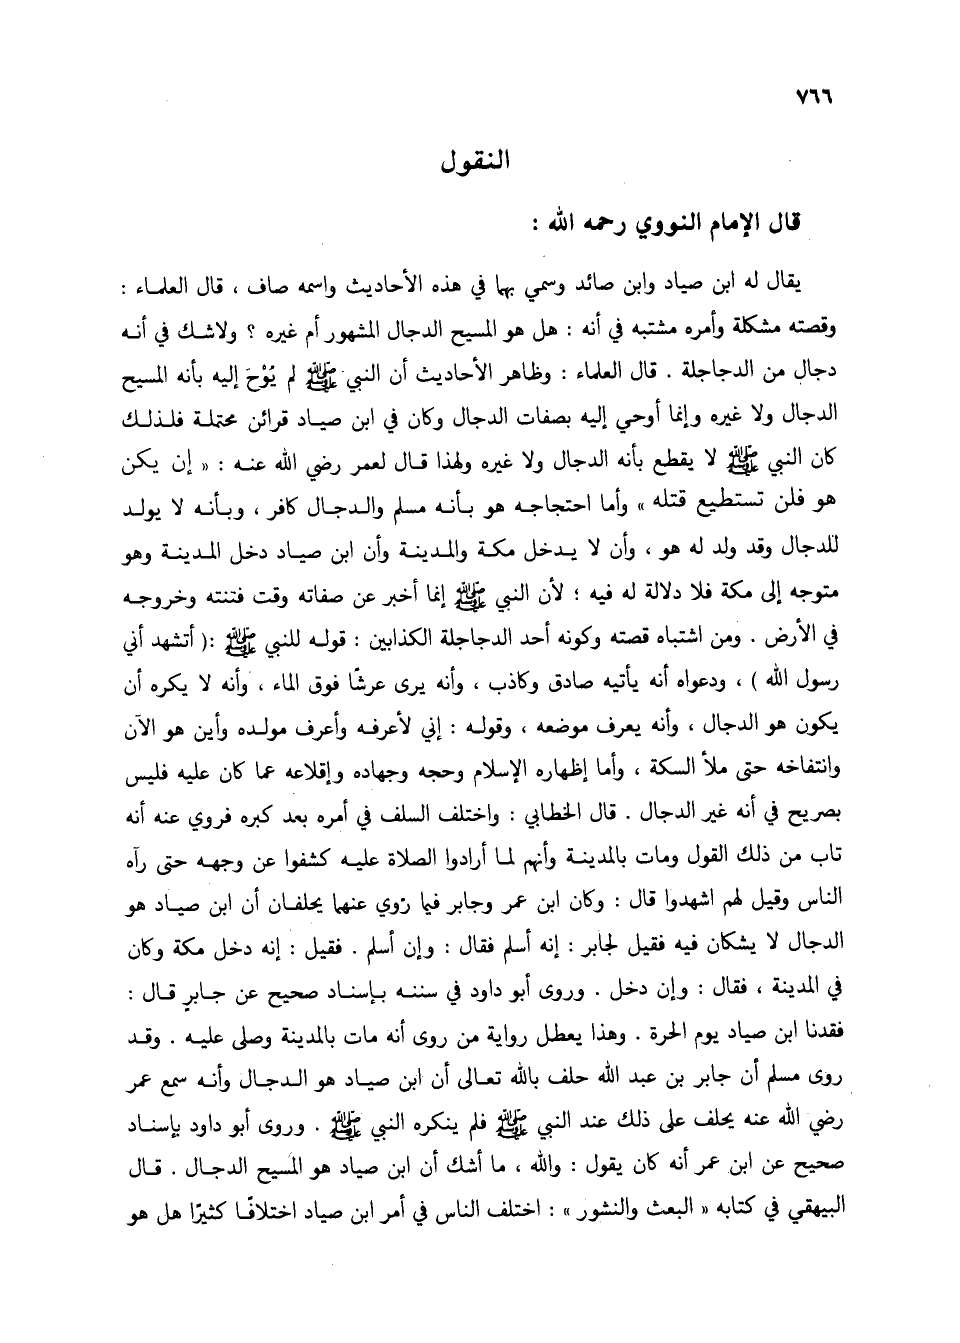 ٧٦٦
النقول
قال الإمام النووي رحمه الله :
يقال له ابن صياد وابن صائد وسمي بها في هذه الأحاديث واسمه صاف ، قال العلمـاء :
وقصته مشكلة وأمره مشتبه في أنه : هل هو المسيح الدجال المشهور أم غيره ؟ ولاشـك في أنـه
دجال من الدجاجلة . قال العلماء : وظاهر الأحاديث أن النبي ﷺ لم يُوْحَ إليه بأنه المسيح
الدجال ولا غيره وإنما أوحي إليه بصفات الدجال وكان في ابن صيـاد قرائن محتملـة فلـذلـك
كان النبي ﷺ لا يقطع بأنه الدجال ولا غيره ولهذا قـال لعمر رضي الله عنـه : « إن يكن
هو فلن تستطيع قتله » وأما احتجاجـه هو بـأنـه مسلم والـدجـال كافر ، وبـأنـه لا يولـد
للدجال وقد ولد له هو ، وأن لا يـدخل مكـة والمـدينـة وأن ابن صيـاد دخل المـدينـة وهو
متوجه إلى مكة فلا دلالة له فيه ؛ لأن النبي ﷺ إنما أخبر عن صفاته وقت فتنته وخروجـه
في الأرض . ومن اشتباه قصته وكونه أحد الدجاجلة الكذابين : قولـه للنبي ﷺ :( أتشهد أني
رسول الله ) ، ودعواه أنه يأتيه صادق وكاذب ، وأنه يرى عرشًا فوق الماء ، وأنه لا يكره أن
يكون هو الدجال ، وأنه يعرف موضعه ، وقولـه : إني لأعرفـه وأعرف مولـده وأين هو الآن
وانتفاخه حتى ملأ السكة ، وأما إظهاره الإسلام وحجه وجهاده وإقلاعه عما كان عليه فليس
بصريح في أنه غير الدجال . قال الخطابي : واختلف السلف في أمره بعد كبره فروي عنه أنه
تاب من ذلك القول ومات بالمدينـة وأنهم لمـا أرادوا الصلاة عليـه كشفوا عن وجهـه حتى رآه
الناس وقيل لهم اشهدوا قال : وكان ابن عمر وجابر فيما رُوي عنهما يحلفـان أن ابن صيـاد هو
الدجال لا يشكان فيه فقيل لجابر : إنه أسلم فقال : وإن أسلم . فقيل : إنه دخل مكة وكان
في المدينة ، فقال : وإن دخل . وروى أبو داود في سننـه بـإسنـاد صحيح عن جـابرٍ قـال :
فقدنا ابن صياد يوم الحرة . وهذا يعطل رواية من روى أنه مات بالمدينة وصلى عليـه . وقـد
روى مسلم أن جابر بن عبد الله حلف بالله تعـالى أن ابن صيـاد هو الـدجـال وأنـه سمع عمر
رضي الله عنه يحلف على ذلك عند النبي ﷺ فلم ينكره النبي ﷺ . وروى أبو داود بإسنـاد
صحيح عن ابن عمر أنه كان يقول : والله ، ما أشك أن ابن صياد هو المسيح الدجال . قـال
البيهقي في كتابه « البعث والنشور » : اختلف الناس في أمر ابن صياد اختلافًـا كثيرًا هل هو